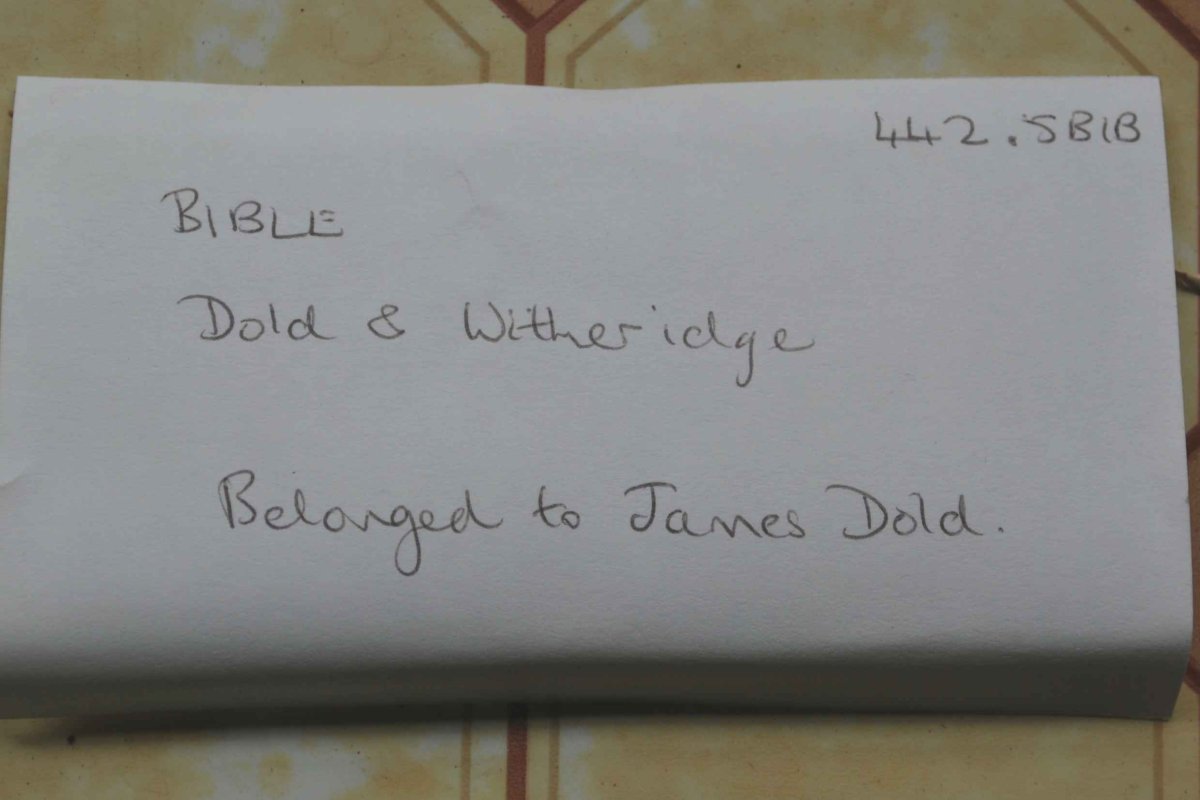 442.5BIB
BIBLE
Dold & Witheridge
Belonged to James Dold.